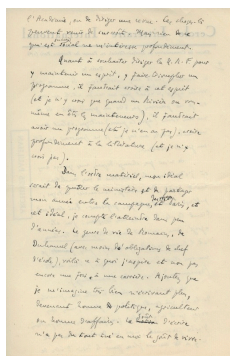 l'Académie, ou de diriger une revue. Les
peuvent venir de surcroît. Mais rien de ce
qui est idéal ne m'intéresse profondément.
Quant à souhaiter diriger la N.R.F. pour
y maintenir un esprit, y faire triompher un
programme, il faudrait croire à cet esprit
(et je n'y vois que quand un Rivière ou
même en êtes là maintenant), il faudrait
avoir un programme (et je n'en ai pas), croire
profondément à la littérature (et je n'y
crois pas).
Dans l'ordre matériel, mon idéal
serait de quitter le ministère et de partager
mon année entre la campagne, et Paris, et
cet idéal, je compte l'atteindre dans peu
d'années. Le genre de vie de Romains, de
Duhamel (avec moins d'obligations de chef
d'école), voilà à quoi j'aspire et non pas
encore une fois, à une carrière. Ajoutez que
je m'imagine très bien n'écrivant plus,
devenant homme de politique, agriculteur
ou homme d'affaires. d'écrire
n'a pas du tout tué en moi le goût de vivre.